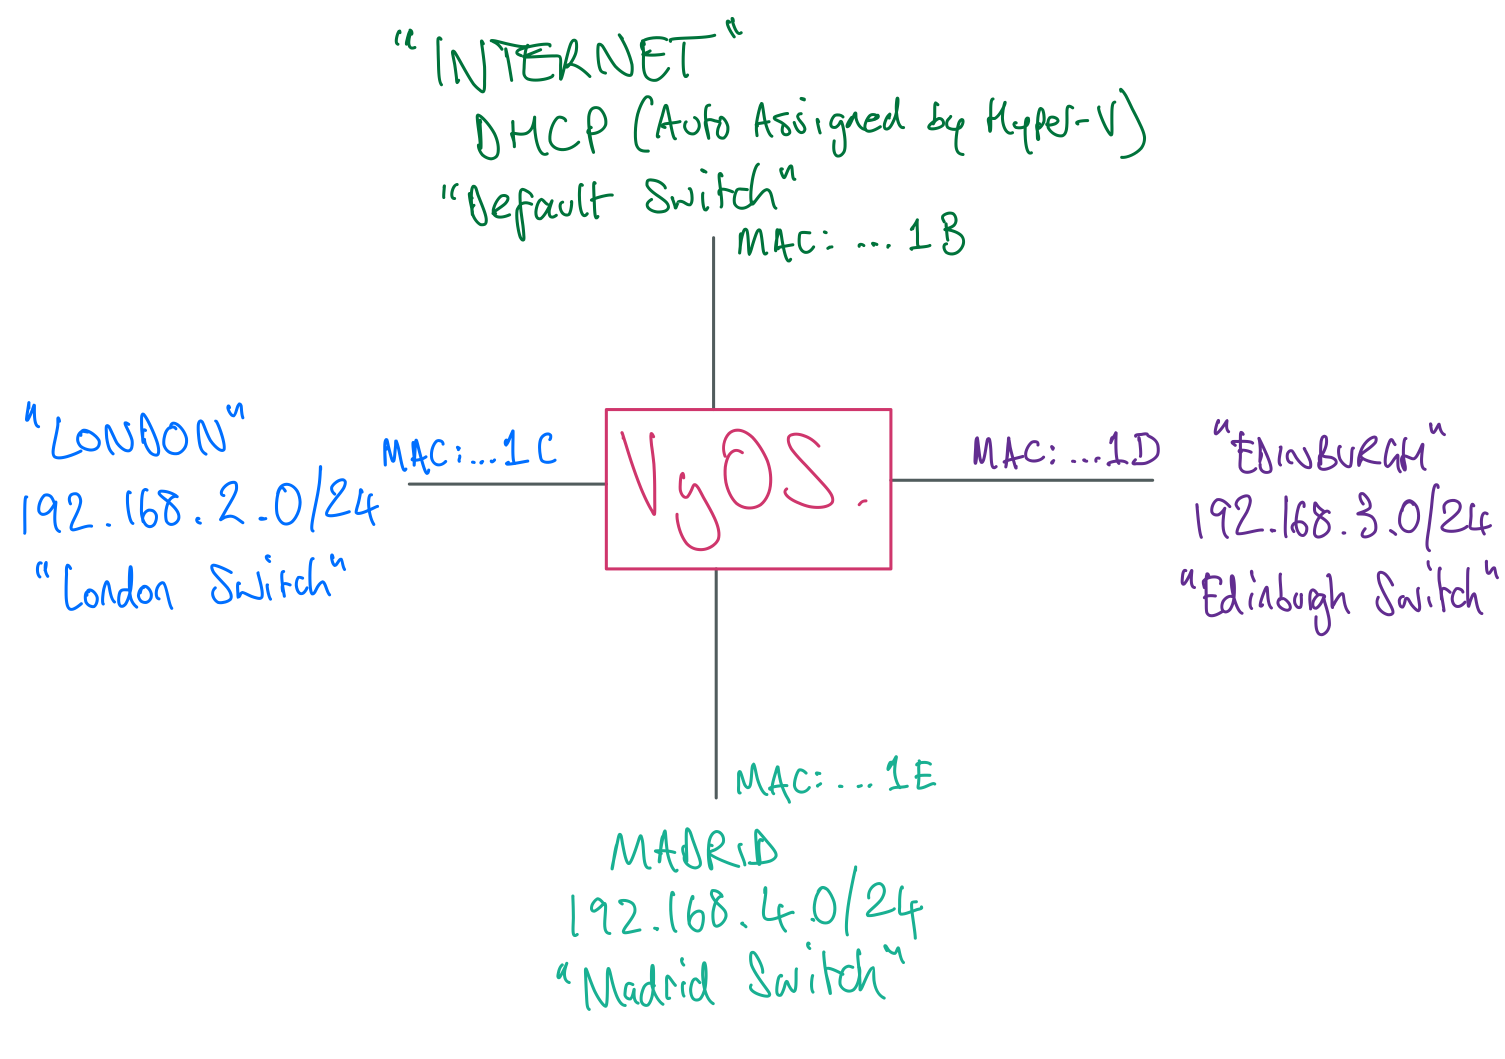 "INTERNET"
DHCP (Auto Assigned by Hyper-V)
"Default Switch"
MAC: ... 1B
"LONDON"
192.168.2.0/24
"London Switch"
MAC: ... 1C
VyOS.
MAC: ... 1D
"EDINBURGH"
192.168.3.0/24
"Edinburgh Switch"
MAC: ... 1E
MADRID
192.168.4.0/24
"Madrid Switch"